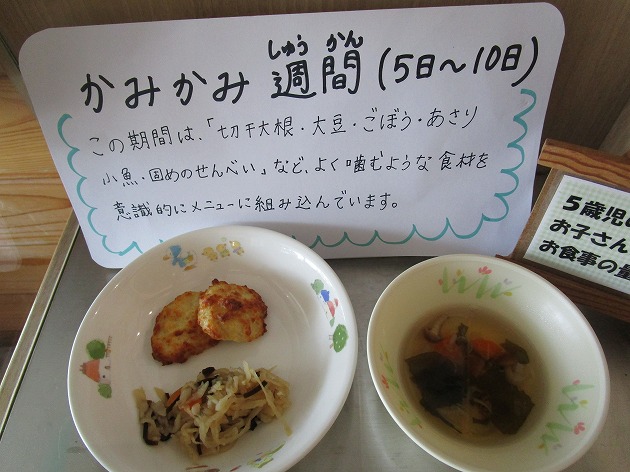 しゅう かん
かみかみ 週間 (5日～10日)
この期間は、「切干大根・大豆・ごぼう・あさり
小魚・固めのせんべい」など、よく噛むような食材を
意識的にメニューに組み込んでいます。
5歳児
お子さん
お食事の量